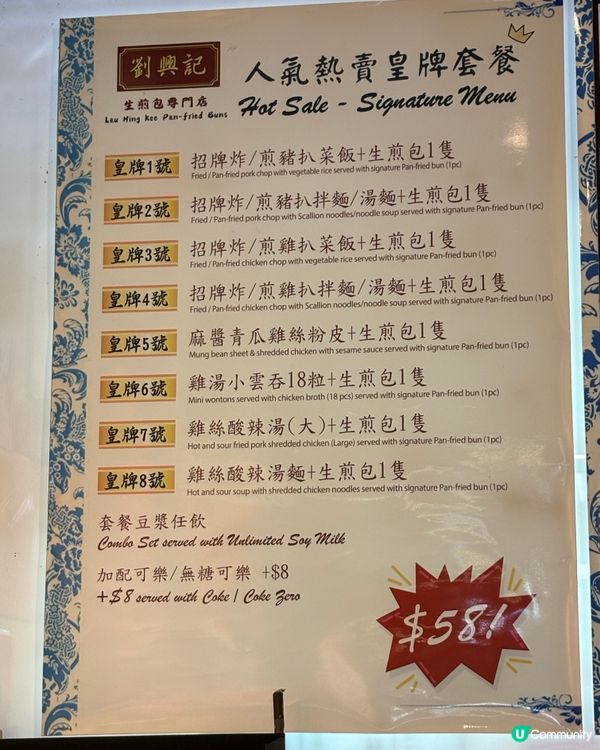 劉興記
生煎包專門店
Lau Hing Kee Pan-fried Buns
人氣熱賣皇牌套餐
Hot Sale - Signature Menu
皇牌1號 招牌炸/煎豬扒菜飯+生煎包1隻
Fried / Pan-fried pork chop with vegetable rice served with signature Pan-fried bun (1pc)
皇牌2號 招牌炸/煎豬扒拌麵/湯麵+生煎包1隻
Fried / Pan-fried pork chop with Scallion noodles/noodle soup served with signature Pan-fried bun (1pc)
皇牌3號 招牌炸/煎雞扒菜飯+生煎包1隻
Fried / Pan-fried chicken chop with vegetable rice served with signature Pan-fried bun (1pc)
皇牌4號 招牌炸/煎雞扒拌麵/湯麵+生煎包1隻
Fried / Pan-fried chicken chop with Scallion noodles/noodle soup served with signature Pan-fried bun (1pc)
皇牌5號 麻醬青瓜雞絲粉皮+生煎包1隻
Mung bean sheet & shredded chicken with sesame sauce served with signature Pan-fried bun (1pc)
皇牌6號 雞湯小雲吞18粒+生煎包1隻
Mini wontons served with chicken broth (18 pcs) served with signature Pan-fried bun (1pc)
皇牌7號 雞絲酸辣湯(大)+生煎包1隻
Hot and sour fried pork shredded chicken (Large) served with signature Pan-fried bun (1pc)
皇牌8號 雞絲酸辣湯麵+生煎包1隻
Hot and sour soup with shredded chicken noodles served with signature Pan-fried bun (1pc)
套餐豆漿任飲
Combo Set served with Unlimited Soy Milk
加配可樂/無糖可樂 +$8
+$8 served with Coke / Coke Zero
$58!
U Community